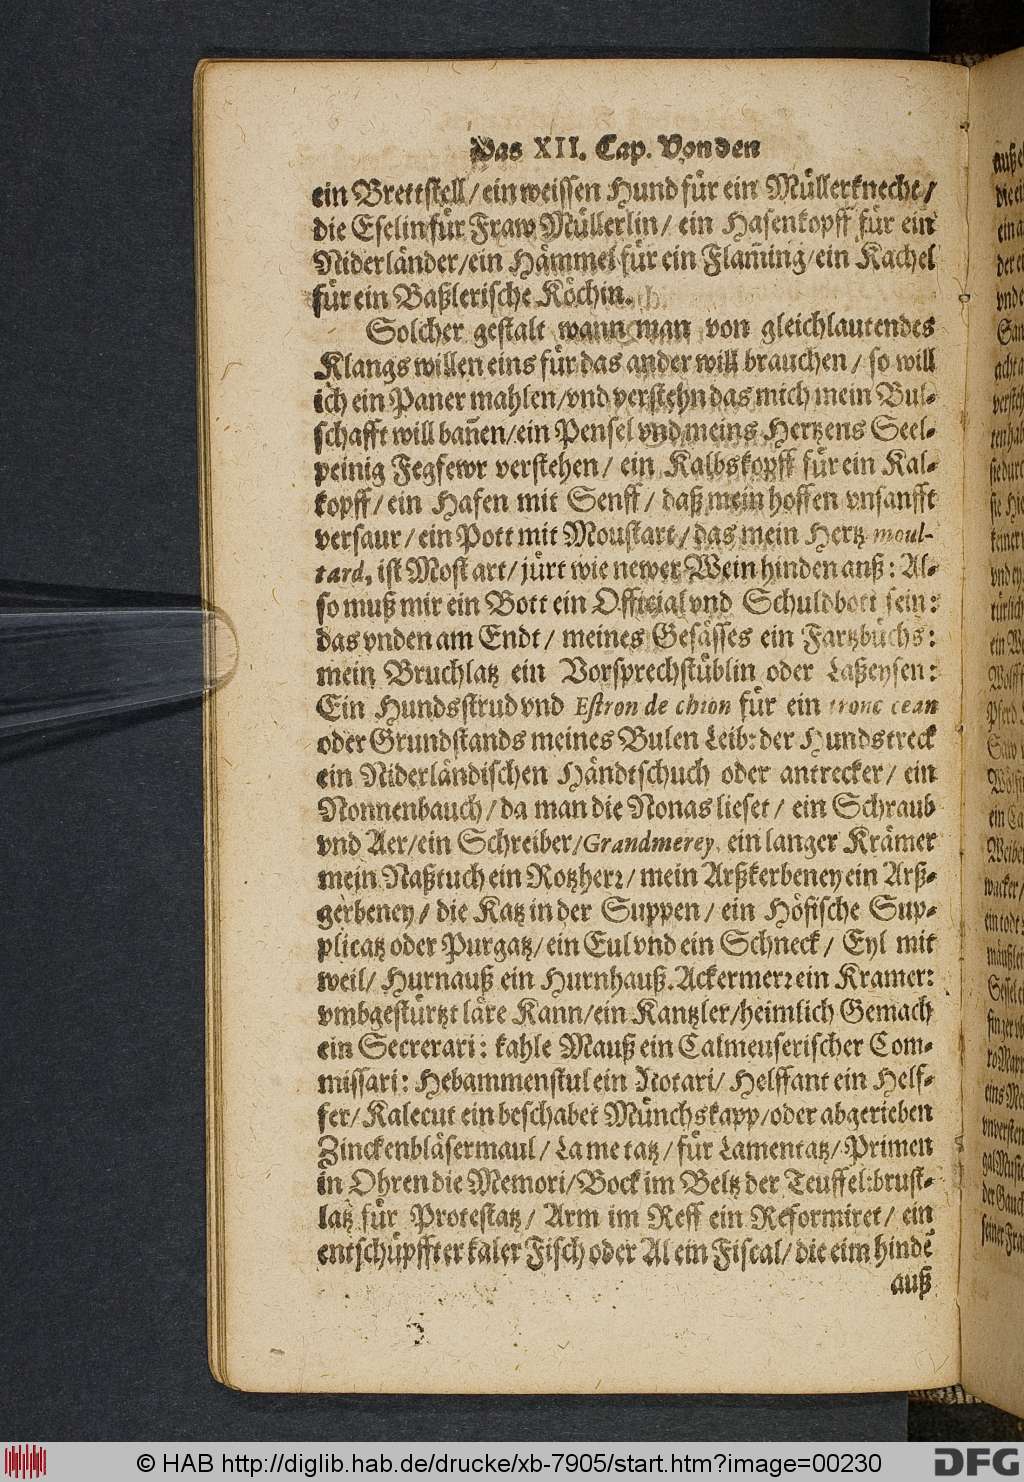 Das XII. Cap. Von den
ein Brettstell/ ein weissen Hund für ein Müllerknecht/
die Eselin für Fraw Müllerlin/ ein Hasenkopff für ein
Niderländer/ein Hämmel für ein Flam̄ing/ein Kachel
für ein Baßlerische Köchin.
Solcher gestalt wann man von gleichlautendes
Klangs willen eins für das ander will brauchen/ so will
ich ein Paner mahlen/vnd verstehn das mich mein Bul-
schafft will bañen/ein Pensel vnd meins Hertzens Seel-
peinig Fegfewr verstehen/ ein Kalbskopff für ein Kal-
kopff/ein Hafen mit Senff/ daß mein hoffen vnsanfft
versaur/ein Pott mit Moustart/das mein Hertz moul-
tard, ist Most art/ jürt wie newer Wein hinden auß: Al-
so muß mir ein Bott ein Official vnd Schuldbott sein:
das vnden am Endt/ meines Gesässes ein Fartzbüchs:
mein Bruchlatz ein Vorsprechstüblin oder Laßeysen:
Ein Hundsstrud vnd Estron de chion für ein tronc cean
oder Grundstands meines Bulen Leib: der Hundstreck
ein Niderländischen Händtschuch oder antrecker/ ein
Nonnenbauch/da man die Nonas lieset/ ein Schraub
vnd Aer/ein Schreiber/Grandmerey, ein langer Krämer
mein Naßtuch ein Rotzherꝛ/mein Arßkerbeney ein Arß-
gerbeney/ die Katz in der Suppen/ ein Höfische Sup-
plicatz oder Purgatz/ein Eul vnd ein Schneck/ Eyl mit
weil/ Hurnauß ein Hurnhauß. Ackermerꝛ ein Kramer:
vmbgestürtzt läre Kann/ein Kantzler/heimlich Gemach
ein Secrerari: kahle Mauß ein Calmeuserischer Com-
missari: Hebammenstul ein Notari/ Helffant ein Helf-
fer/Kalecut ein beschabet Münchskapp/oder abgerieben
Zinckenbläsermaul/ Lametatz/für Lamentatz/Primen
in Ohren die Memori/Bock im Beltz der Teuffel: brust-
latz für Protestatz/ Arm im Reff ein Reformiret/ ein
entschüpffter kaler Fisch oder Al ein Fiscal/ die eim hindē
auß
© HAB http://diglib.hab.de/drucke/xb-7905/start.htm?image=00230
DFG